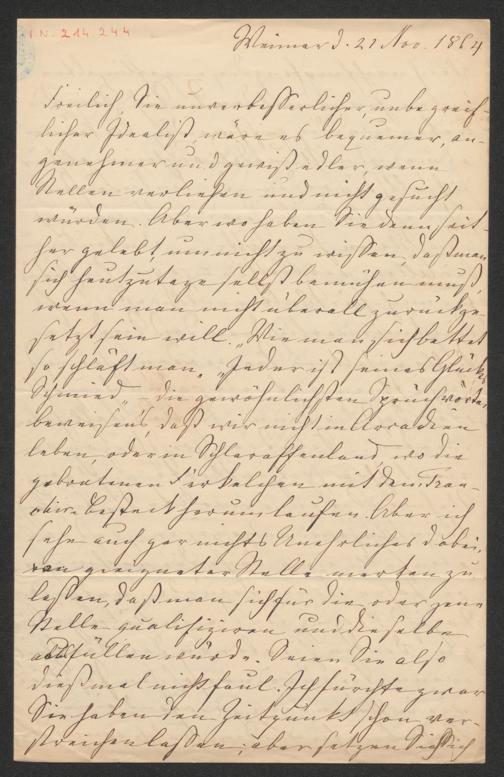 I.N. 214.244
Weimar d. 21 Nov. 1864
Freilich, Sie unverbesserlicher, unbegreif-
licher Idealist, wäre es bequemer, an-
genehmer und gewiß edler, wenn
Stellen verliehen und nicht gesucht
würden. Aber wo haben Sie denn seit-
her gelebt, um nicht zu wissen, daß man
sich heutzutage selbst bemühen muß,
wenn man nicht überall zurückge-
setzt sein will. „Wie man sich bettet
so schläft man," „Jeder ist seines Glückes
Schmied" – die gewöhnlichsten Sprüchwörter
beweisen's, daß wir nicht in Arcadien
leben, oder im Schlaraffenland, wo die
gebratenen Ferkelchen mit dem Tran-
chir-Besteck herumlaufen. Aber ich
sehe auch gar nichts Unehrliches dabei,
an geeigneter Stelle merken zu
lassen, daß man sich für die oder jene
Stelle qualifiziren und dieselbe
ausfüllen würde. Seien Sie also
dießmal nicht faul. Ich fürchte zwar
Sie haben den Zeitpunkt schon ver-
streichen lassen; aber setzen Sie sich